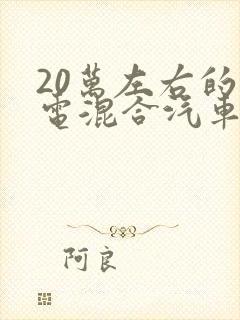 20萬左右的
電混合汽車
阿良